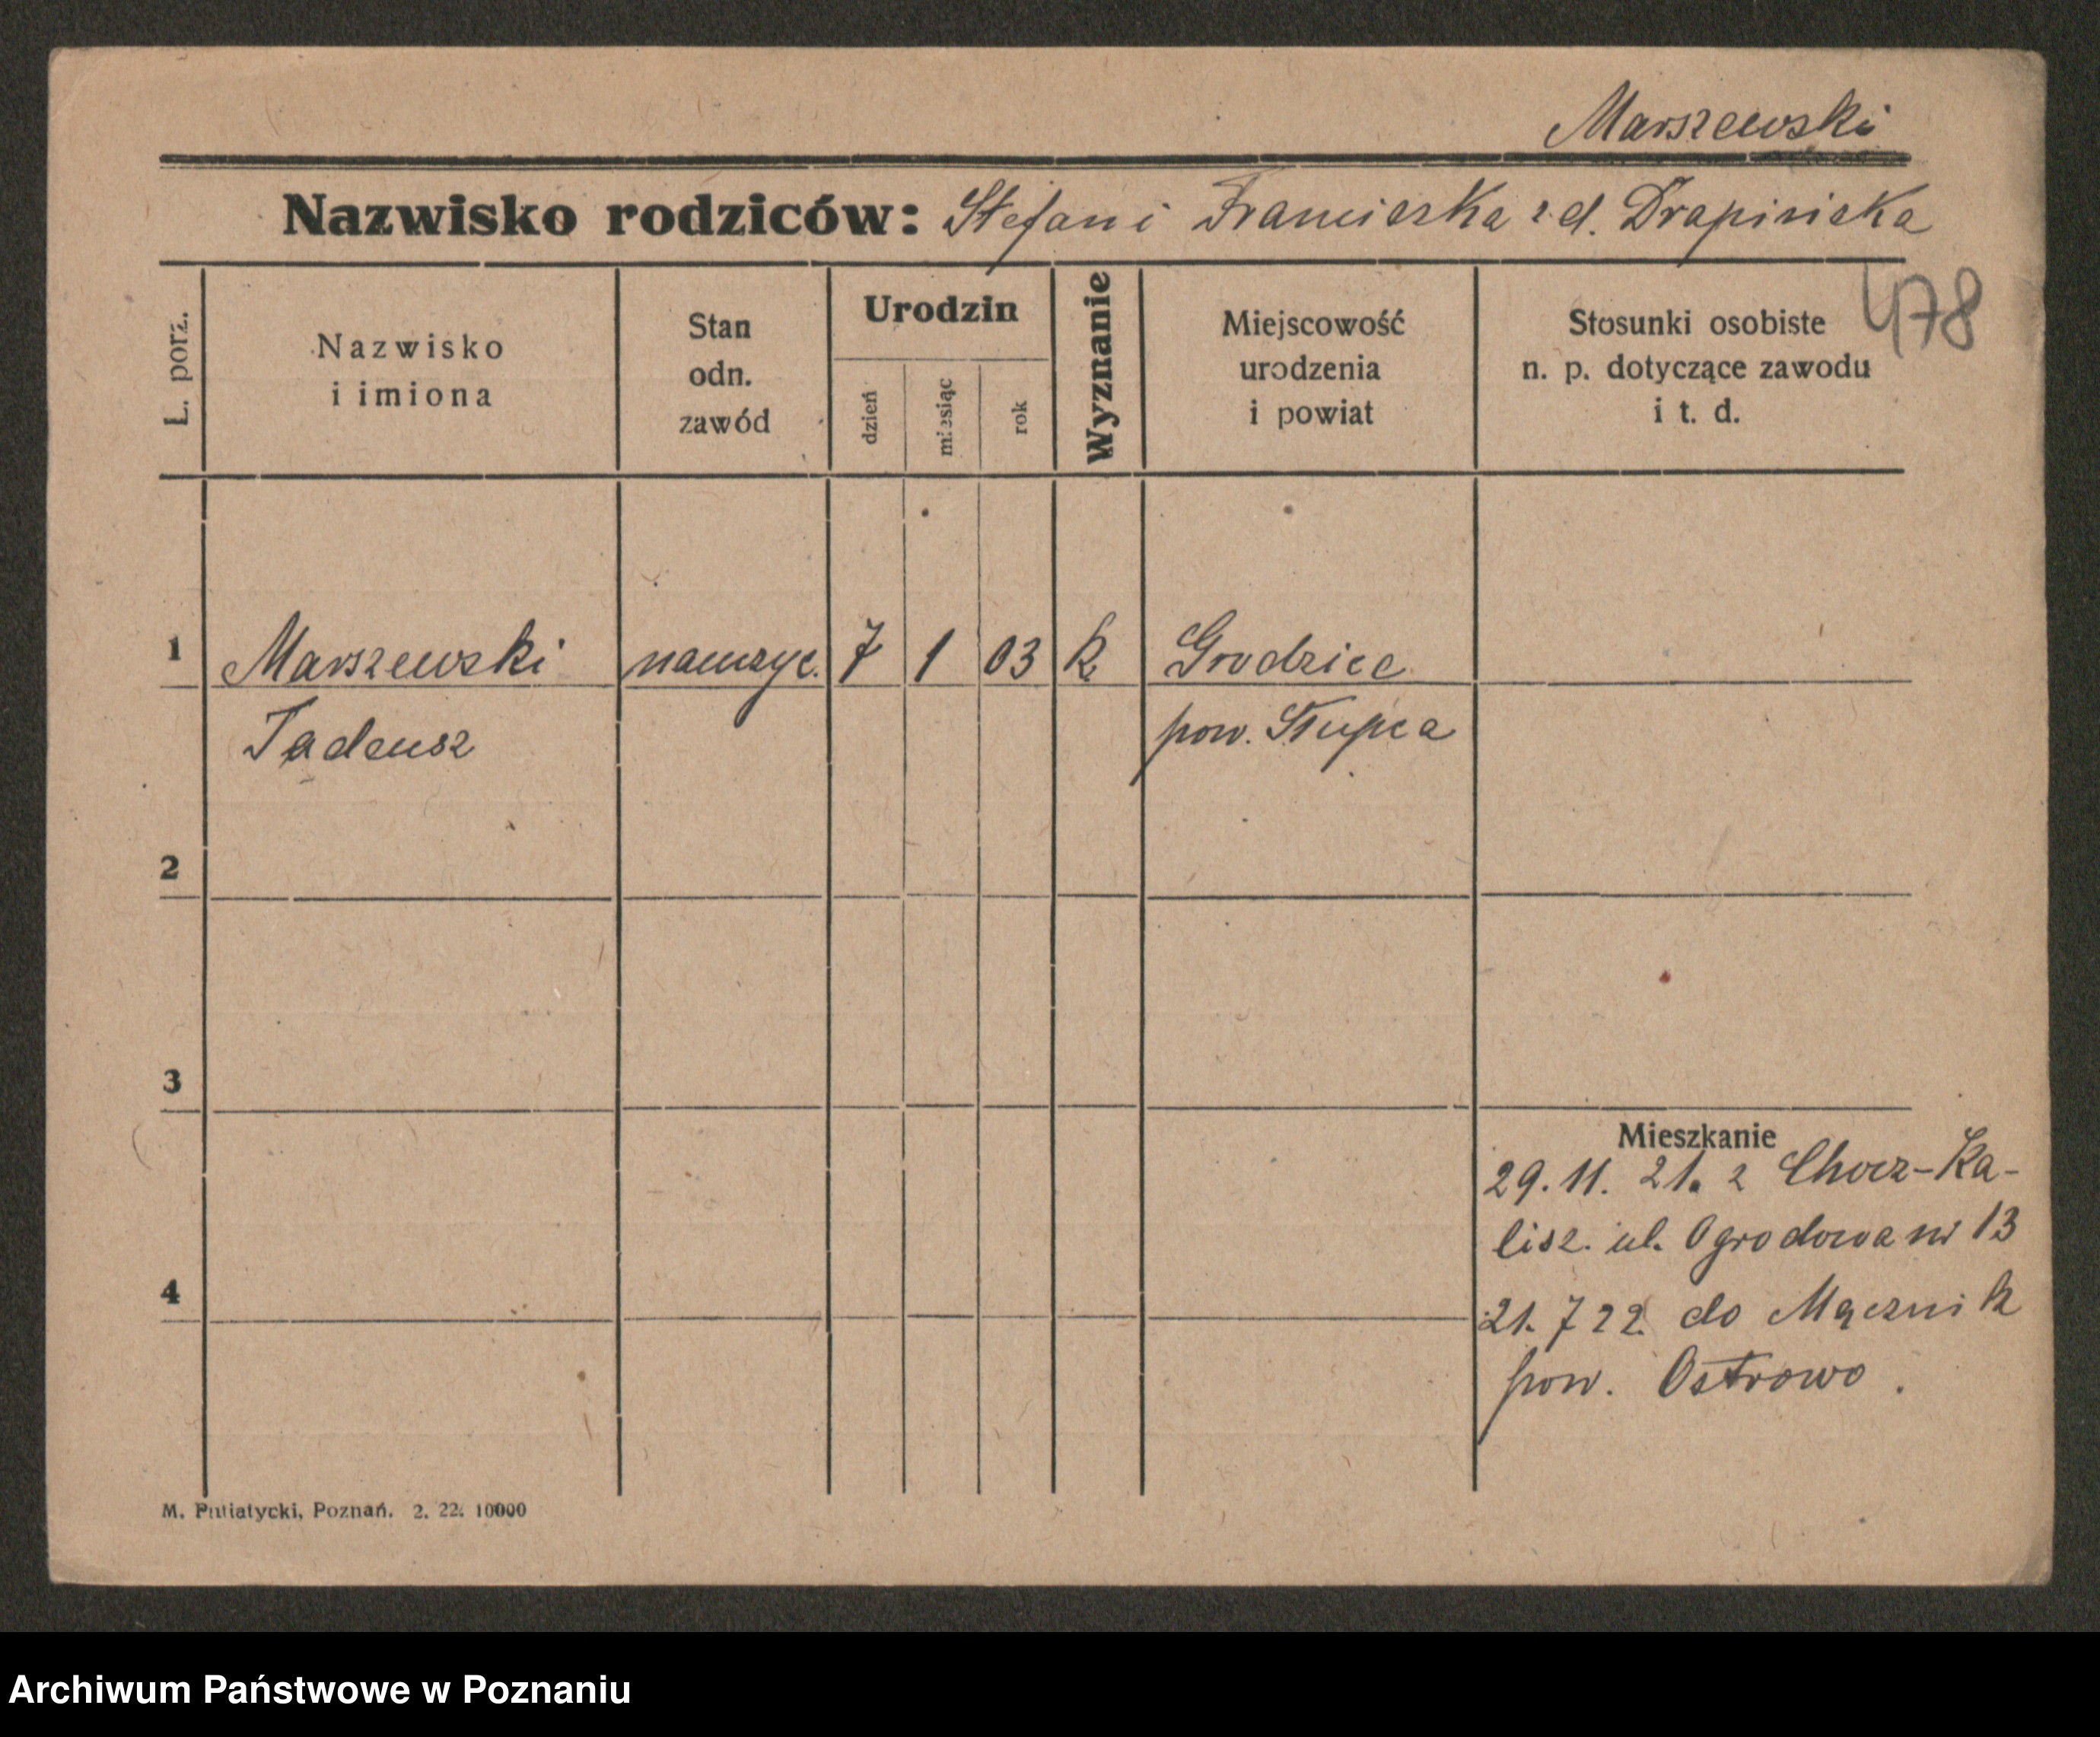 Marszewski
Nazwisko rodziców: Stefan i Franciszka z d. Drapińska
478
L. porz.
Nazwisko
i imiona
Stan
odn.
zawód
Urodzin
dzień
miesiąc
rok
Wyznanie
Miejscowość
urodzenia
i powiat
Stosunki osobiste
n. p. dotyczące zawodu
i t. d.
1 Marszewski nauczyc. 7 1 03 k Grodziec
Tadeusz pow. Słupca
2
3
Mieszkanie
29. 11. 21. z Chocz-Ka-
lisz. ul. Ogrodowa nr 13
4
21. 7 22. do Mącznik
pow. Ostrowo.
M. Putiatycki, Poznań. 2. 22. 10000
Archiwum Państwowe w Poznaniu